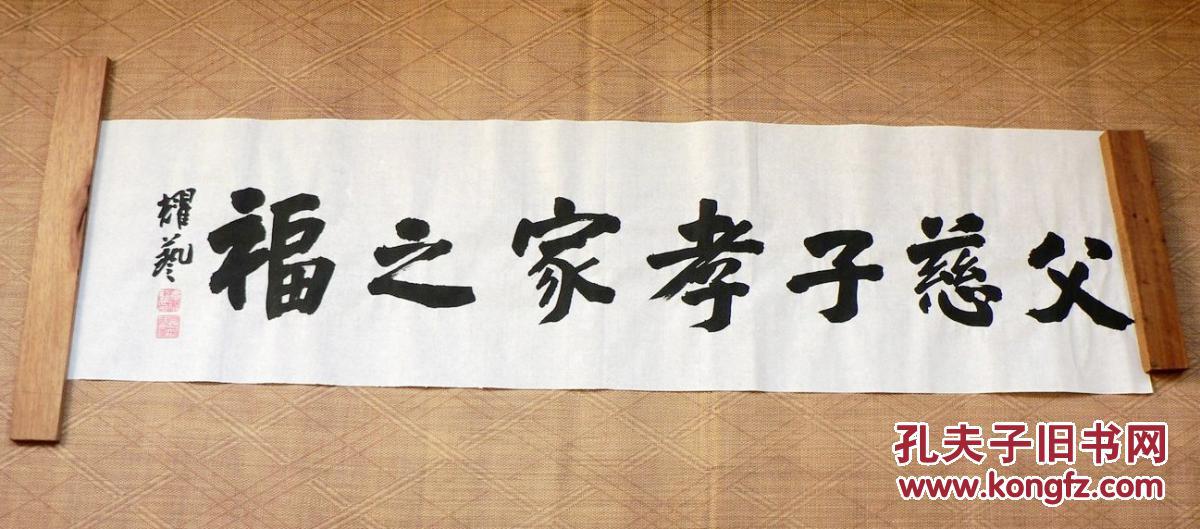 父慈子孝家之福
耀藝
孔夫子旧书网
www.kongfz.com